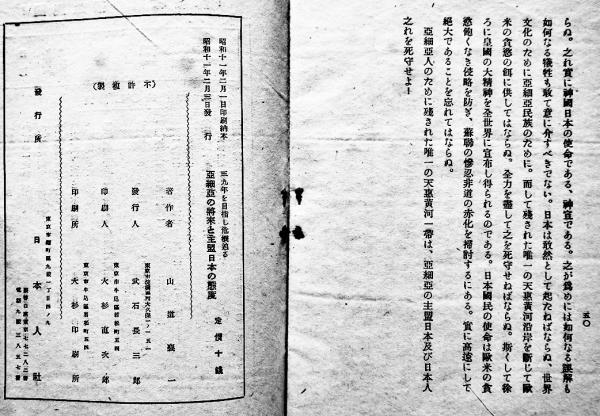 らぬ。之れ實に神國日本の使命である、神宣である。之が爲めには如何なる誤解も
如何なる犧牲も敢て意に介すべきでない。日本は敢然として起たねばならぬ、世界
文化のために亞細亞民族のために。而して殘された唯一の天惠黃河沿岸を斷じて歐
米の貪慾の餌に供してはならぬ。全力を盡して之を死守せねばならぬ。斯くして徐
ろに皇國の大精神を全世界に宣布し得られるのである。日本國民の使命は歐米の貪
慾飽くなき侵略を防ぎ、蘇聯の慘忍非道の赤化を掃討するにある。實に高遠にして
絕大であることを忘れてはならぬ。
亞細亞人のために殘された唯一の天惠黃河一帶は、亞細亞の主盟日本及び日本人
之れを死守せよ！
五〇
昭和十一年二月一日印刷納本
昭和十一年二月三日發行
(不許複製)
三九年を目指し危機迫る
亞細亞の將來と主盟日本の態度
定價十錢
著作者 山道襄一
發行人 武石長三郎
東京市牛込區若松町五四
印刷人 大杉直次郎
東京市牛込區若松町五四
印刷所 大杉印刷所
發行所 日本人社
東京市麴町區九段一丁目四ノ九